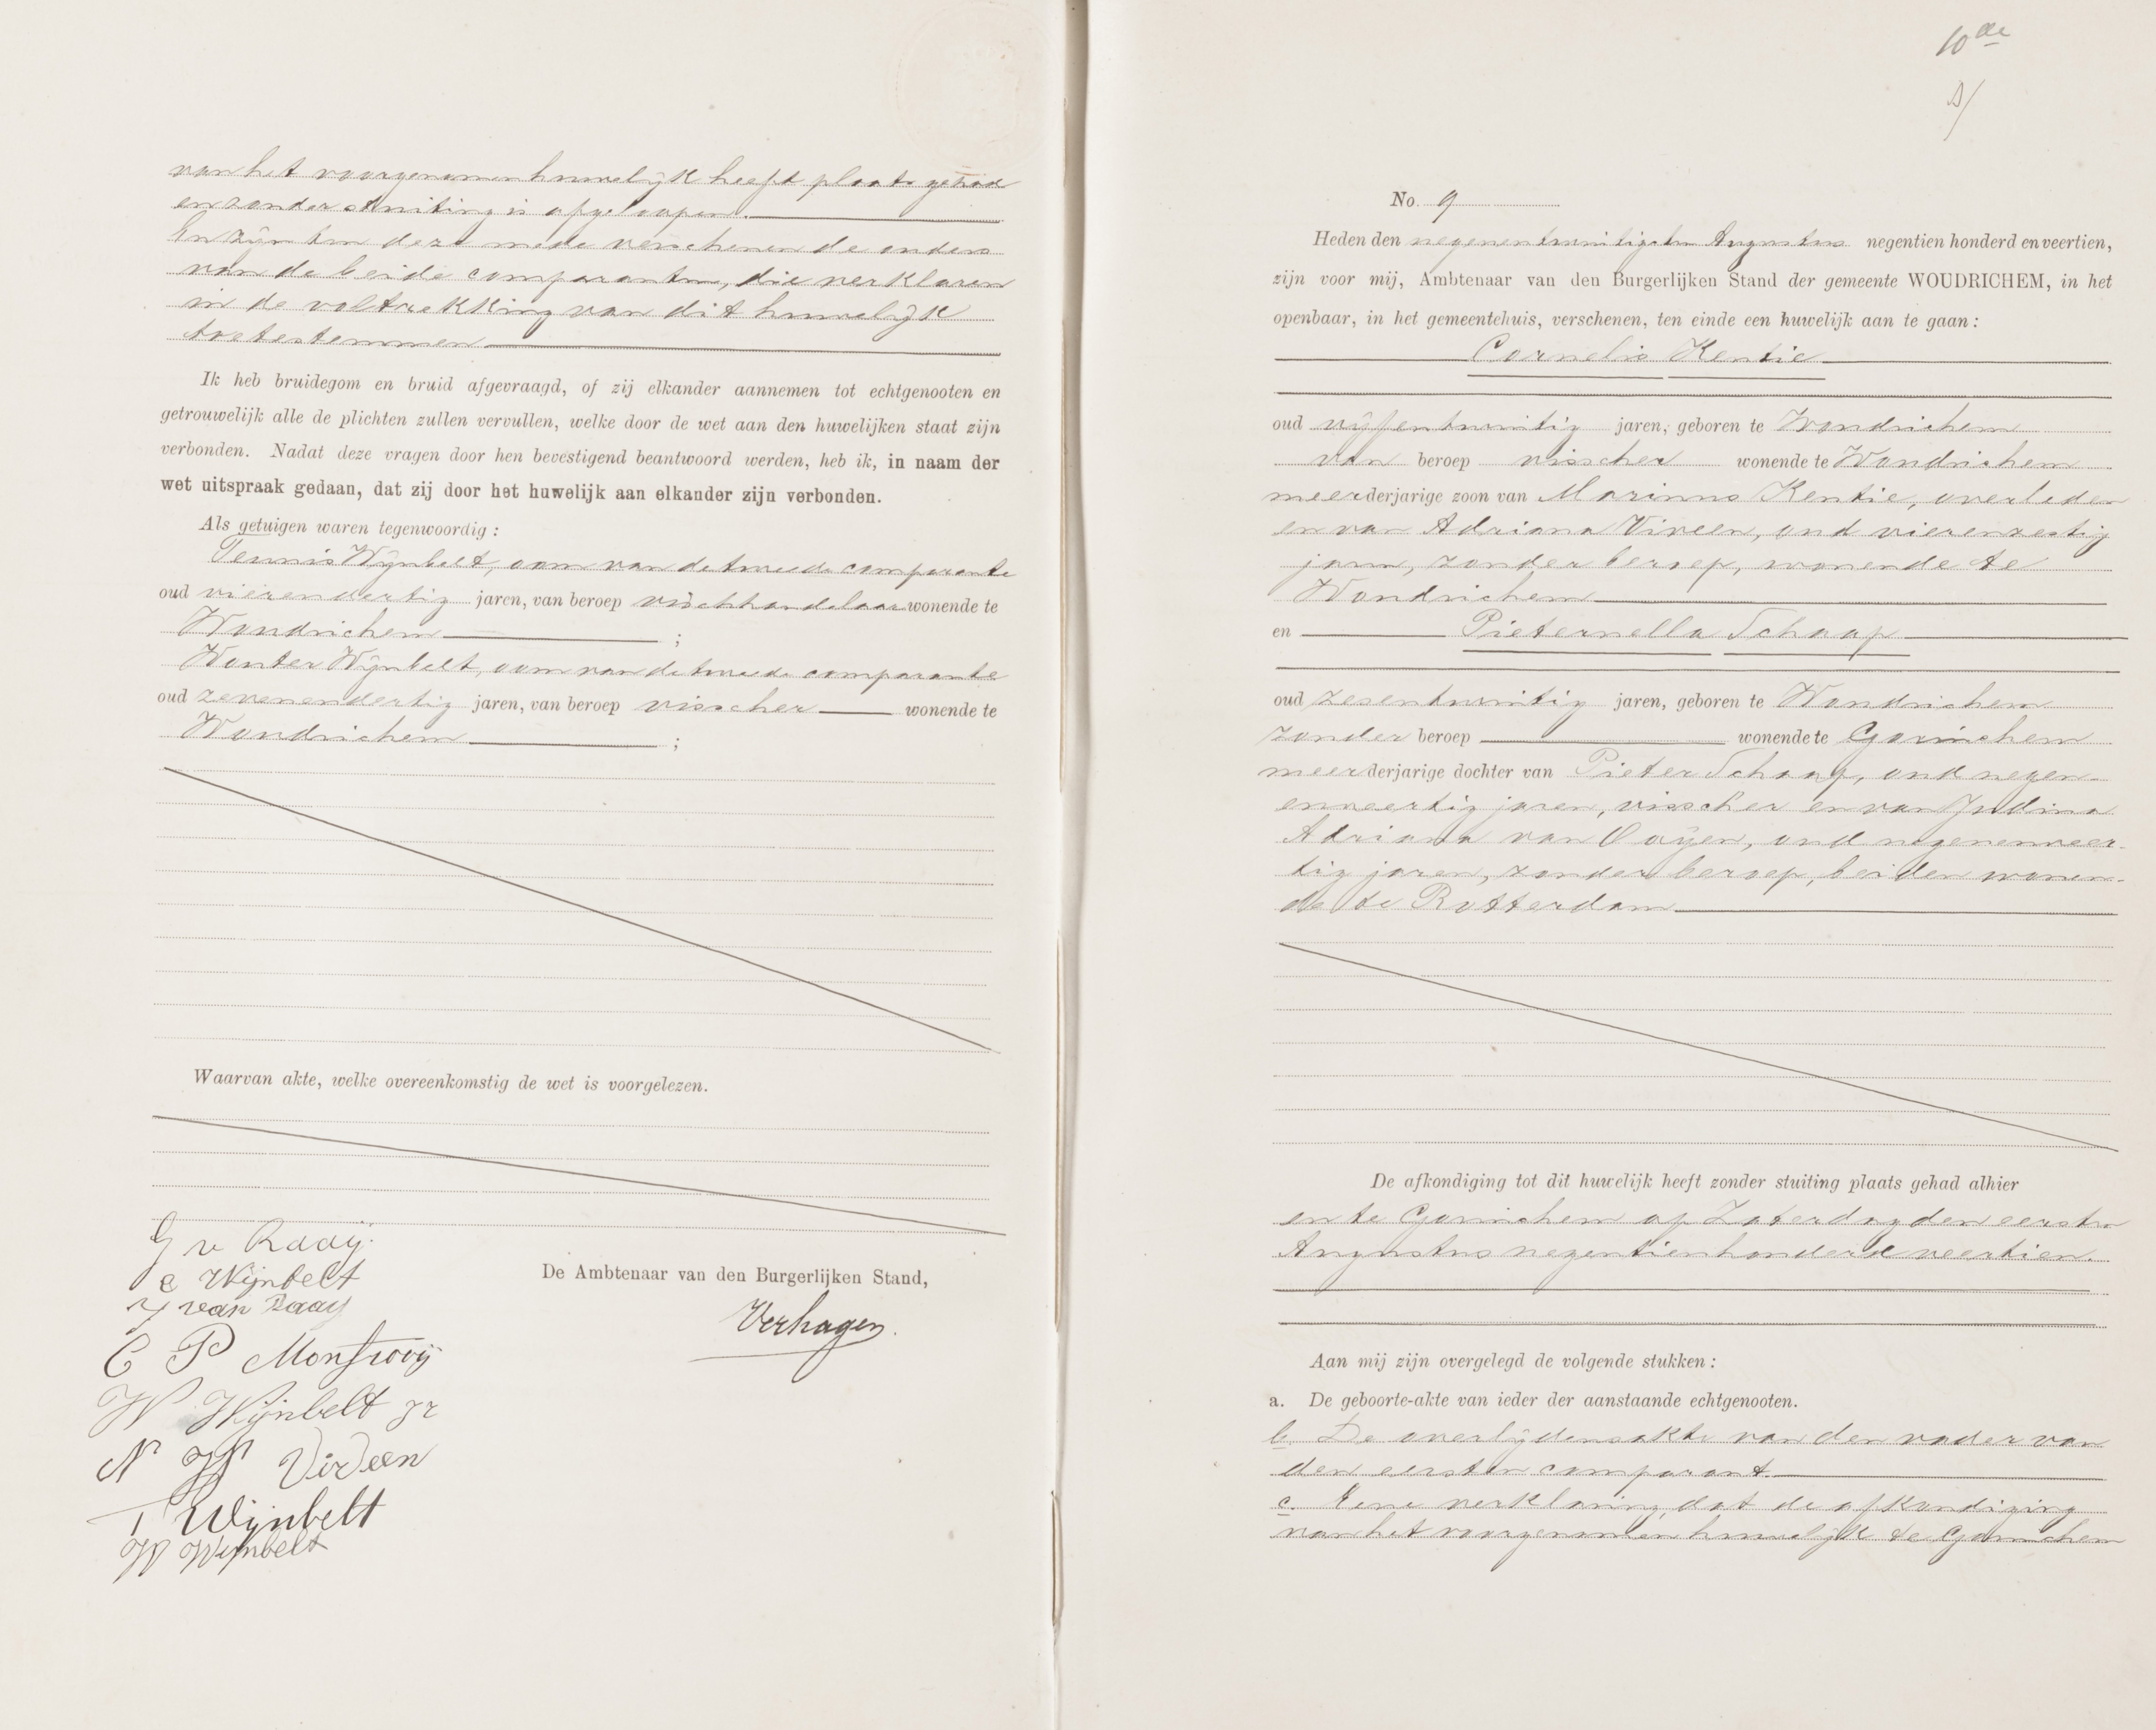 van het voorgenomen huwelijk heeft plaats gehad
en zonder stuiting is afgeloopen.
En zijn ten deze mede verschenen de ouders
van de beide comparanten, die verklaren
in de voltrekking van dit huwelijk
toetestemmen
Ik heb bruidegom en bruid afgevraagd, of zij elkander aannemen tot echtgenooten en
getrouwelijk alle de plichten zullen vervullen, welke door de wet aan den huwelijken staat zijn
verbonden. Nadat deze vragen door hen bevestigend beantwoord werden, heb ik, in naam der
wet uitspraak gedaan, dat zij door het huwelijk aan elkander zijn verbonden.
Als getuigen waren tegenwoordig:
Teunis Wijnbelt, oom van de tweede comparante
oud vierendertig jaren, van beroep vischhandelaar wonende te
Woudrichem ;
Wouter Wijnbelt, oom van de tweede comparante
oud zevenendertig jaren, van beroep visscher wonende te
Woudrichem ;
Waarvan akte, welke overeenkomstig de wet is voorgelezen.
G v Raaij.
C Wijnbelt
van Raaij
De Ambtenaar van den Burgerlijken Stand,
Verhagen.
C P Monfrooij
W Wijnbelt jr
N W Viveen
T Wijnbelt
W Wijnbelt
10de
No. 9
Heden den negenentwintigsten Augustus negentien honderd en veertien,
zijn voor mij, Ambtenaar van den Burgerlijken Stand der gemeente WOUDRICHEM, in het
openbaar, in het gemeentehuis, verschenen, ten einde een huwelijk aan te gaan:
Cornelis Kentie
oud vijfentwintig jaren, geboren te Woudrichem
van beroep visscher wonende te Woudrichem
meerderjarige zoon van Marinus Kentie, overleden
en van Adriana Viveen, oud vierenzestig
jaren, zonder beroep, wonende te
Woudrichem
en Pieternella Schaap
oud zesentwintig jaren, geboren te Woudrichem
zonder beroep wonende te Gorinchem
meerderjarige dochter van Pieter Schaap, oud negen-
enveertig jaren, visscher en van Judina
Adriana van Ooijen, oud negenenveer-
tig jaren, zonder beroep, beiden wonen-
de te Rotterdam
De afkondiging tot dit huwelijk heeft zonder stuiting plaats gehad alhier
en te Gorinchem op Zaterdag den eersten
Augustus negentienhonderd veertien.
Aan mij zijn overgelegd de volgende stukken:
a. De geboorte-akte van ieder der aanstaande echtgenooten.
b. De overlijdensakte van den vader van
den eersten comparant.
c. Eene verklaring, dat de afkondiging
van het voorgenomen huwelijk te Gorinchem